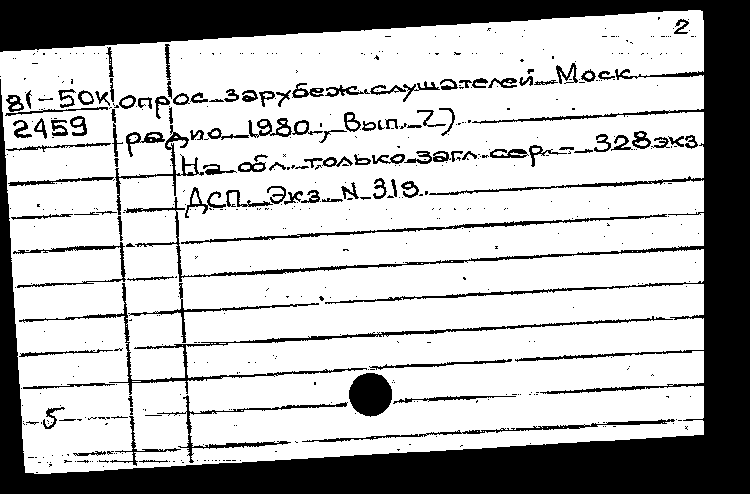 2
81-50к опрос зарубеж. слушателей Моск.
2459 радио 1980; Вып. 7)
На обл. только загл. сер. - 328 экз.
ДСП. Экз. N 319.
5